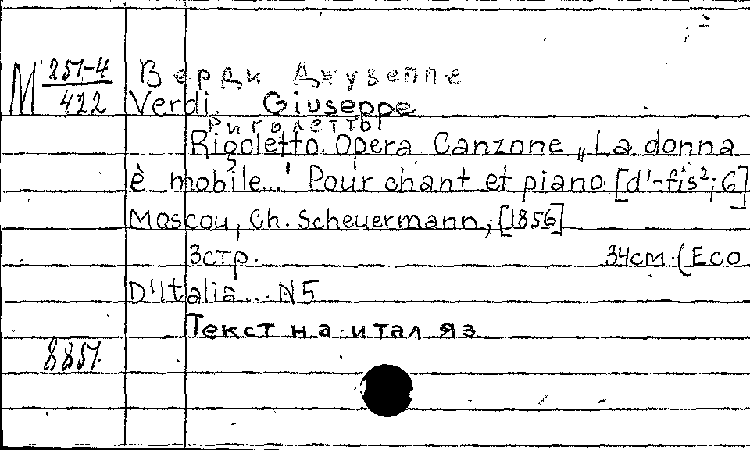 М 251-4
422
Верди Джузеппе
Verdi Giuseppe
Риголетто
Rigoletto. Opera Canzone „La donna
è mobile..." Pour chant et piano [d'-fis²; G]
Moscou, Ch. Scheuermann, [1856]
3стр. 34см. (Eco
D'Italia... N5
Текст на итал яз
8851